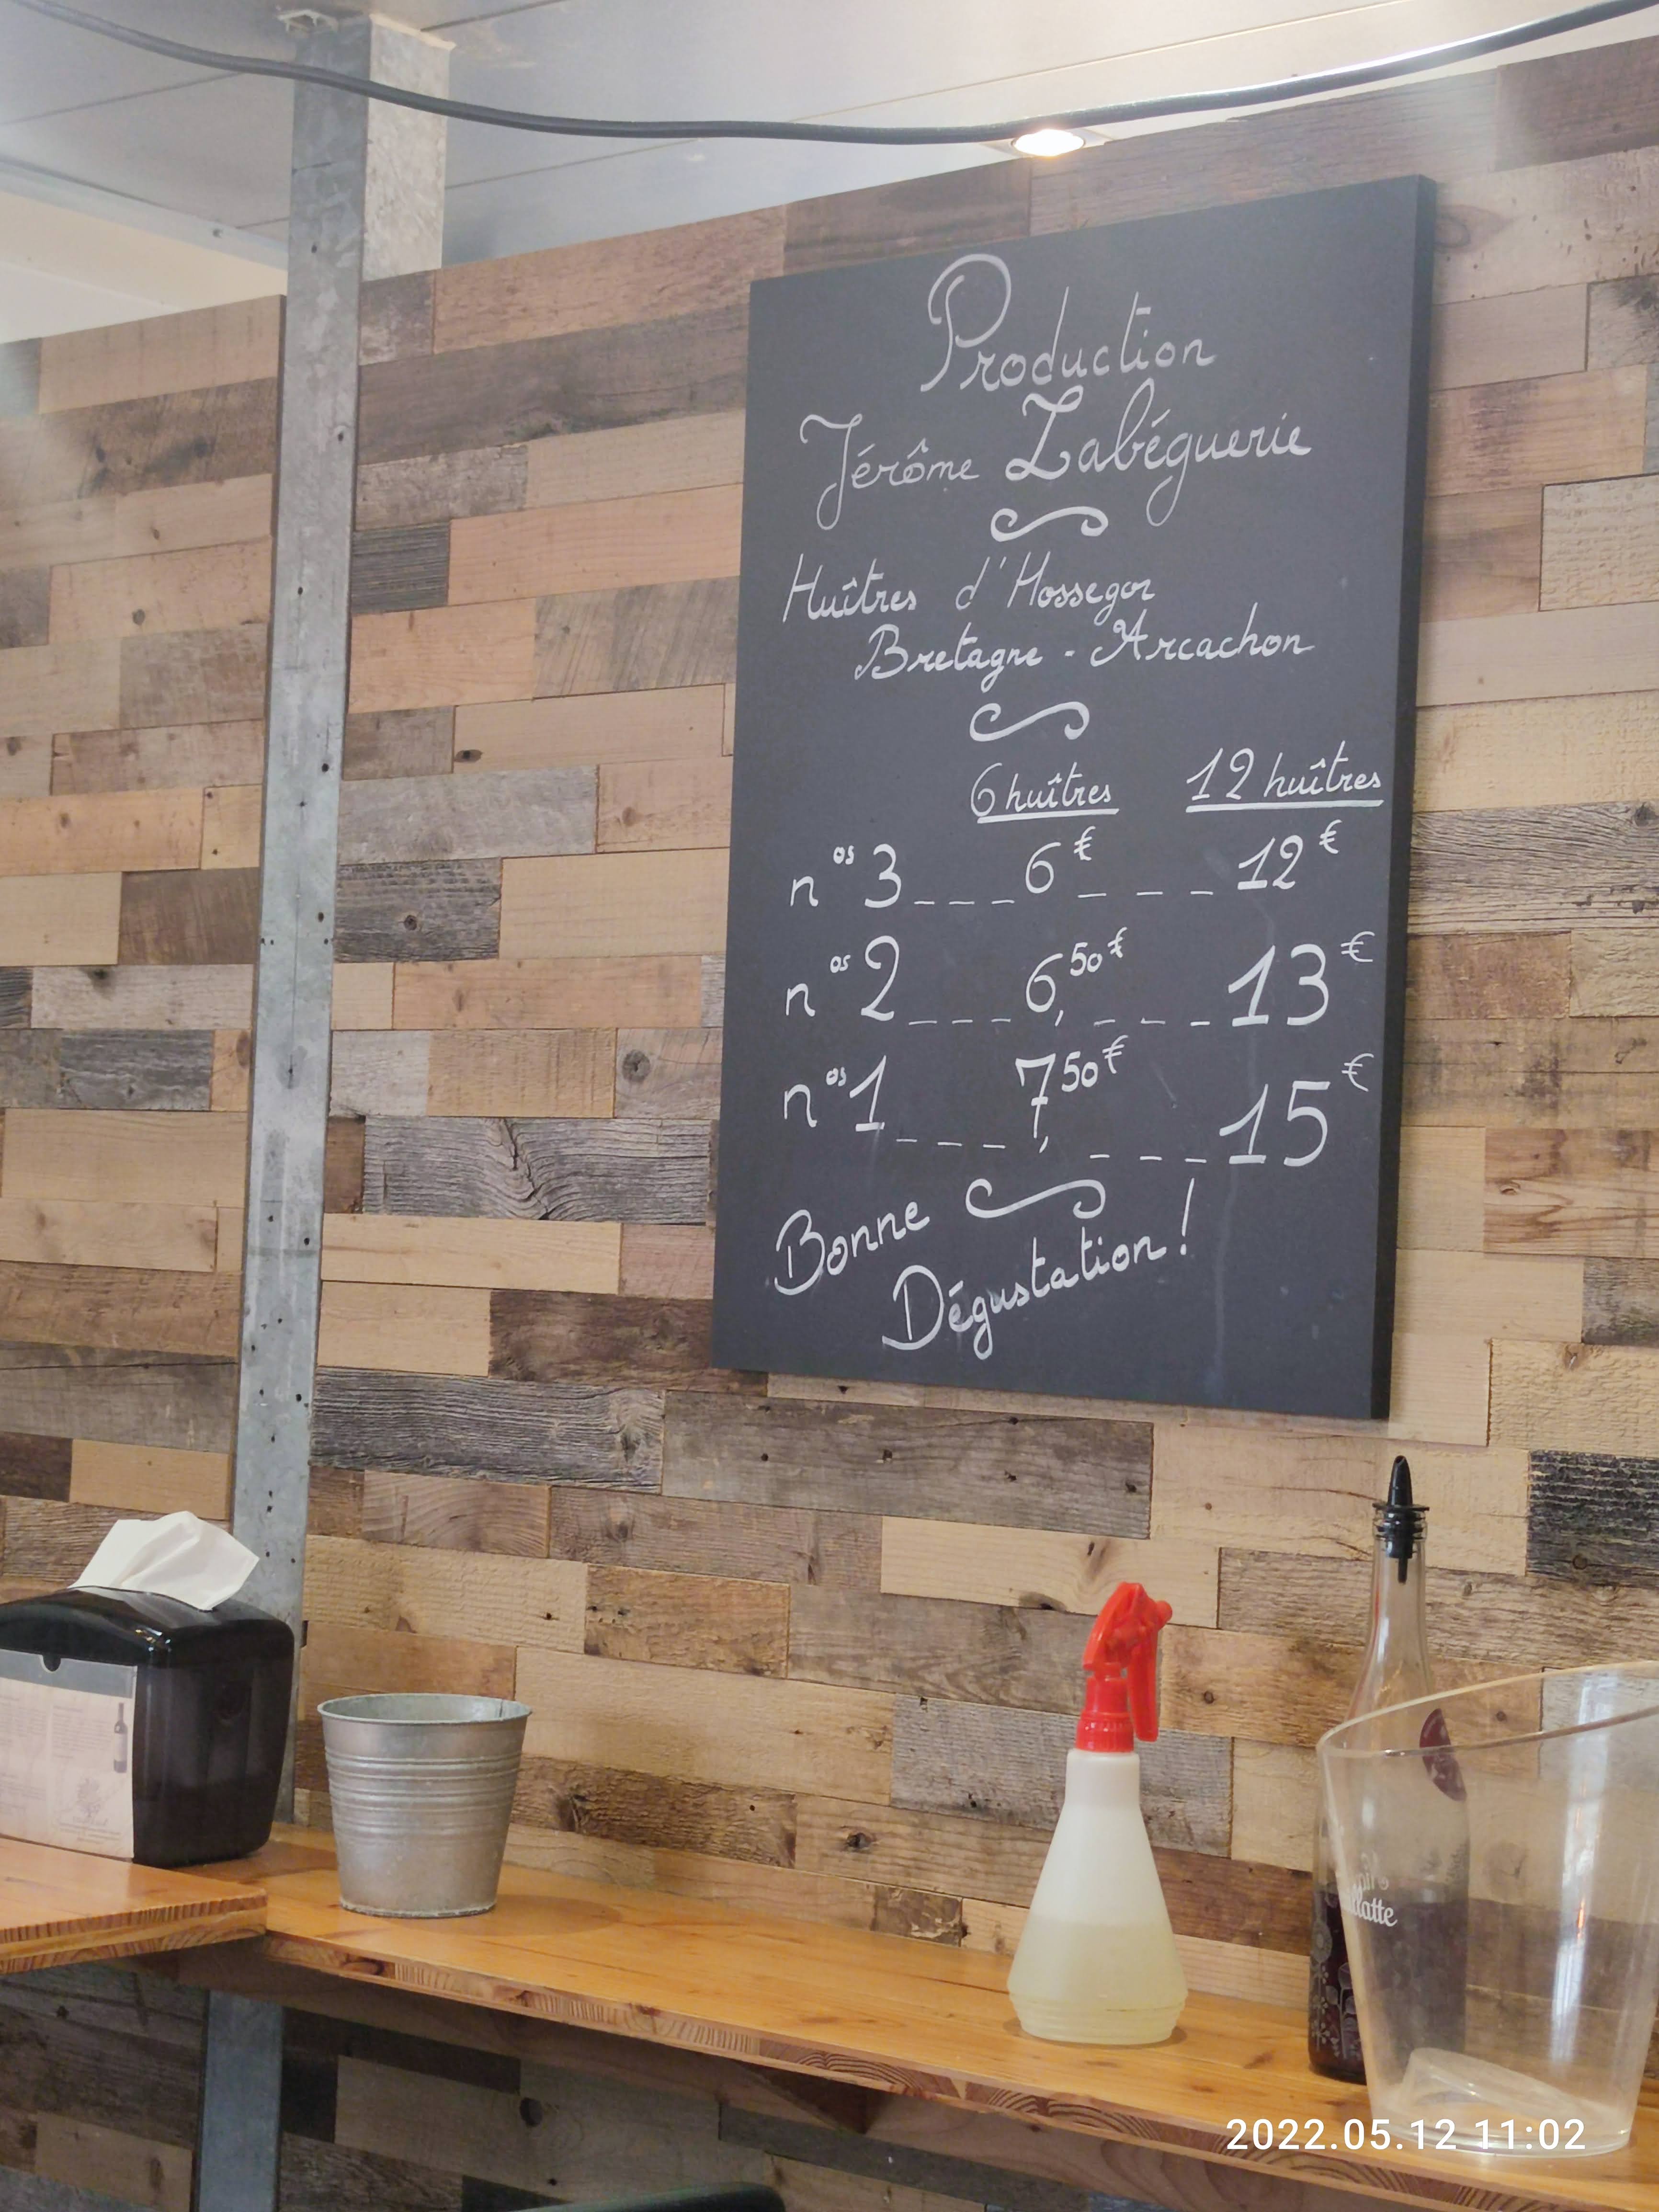 Production
Jérôme Labéguerie
Huîtres d'Hossegor
Bretagne - Arcachon
6 huîtres 12 huîtres
n os 3 _ _ _ 6 € _ _ _ 12 €
n os 2 _ _ _ 6,50 € _ _ _ 13 €
n os 1 _ _ _ 7,50 € _ _ _ 15 €
Bonne
Dégustation !
2022.05.12 11:02